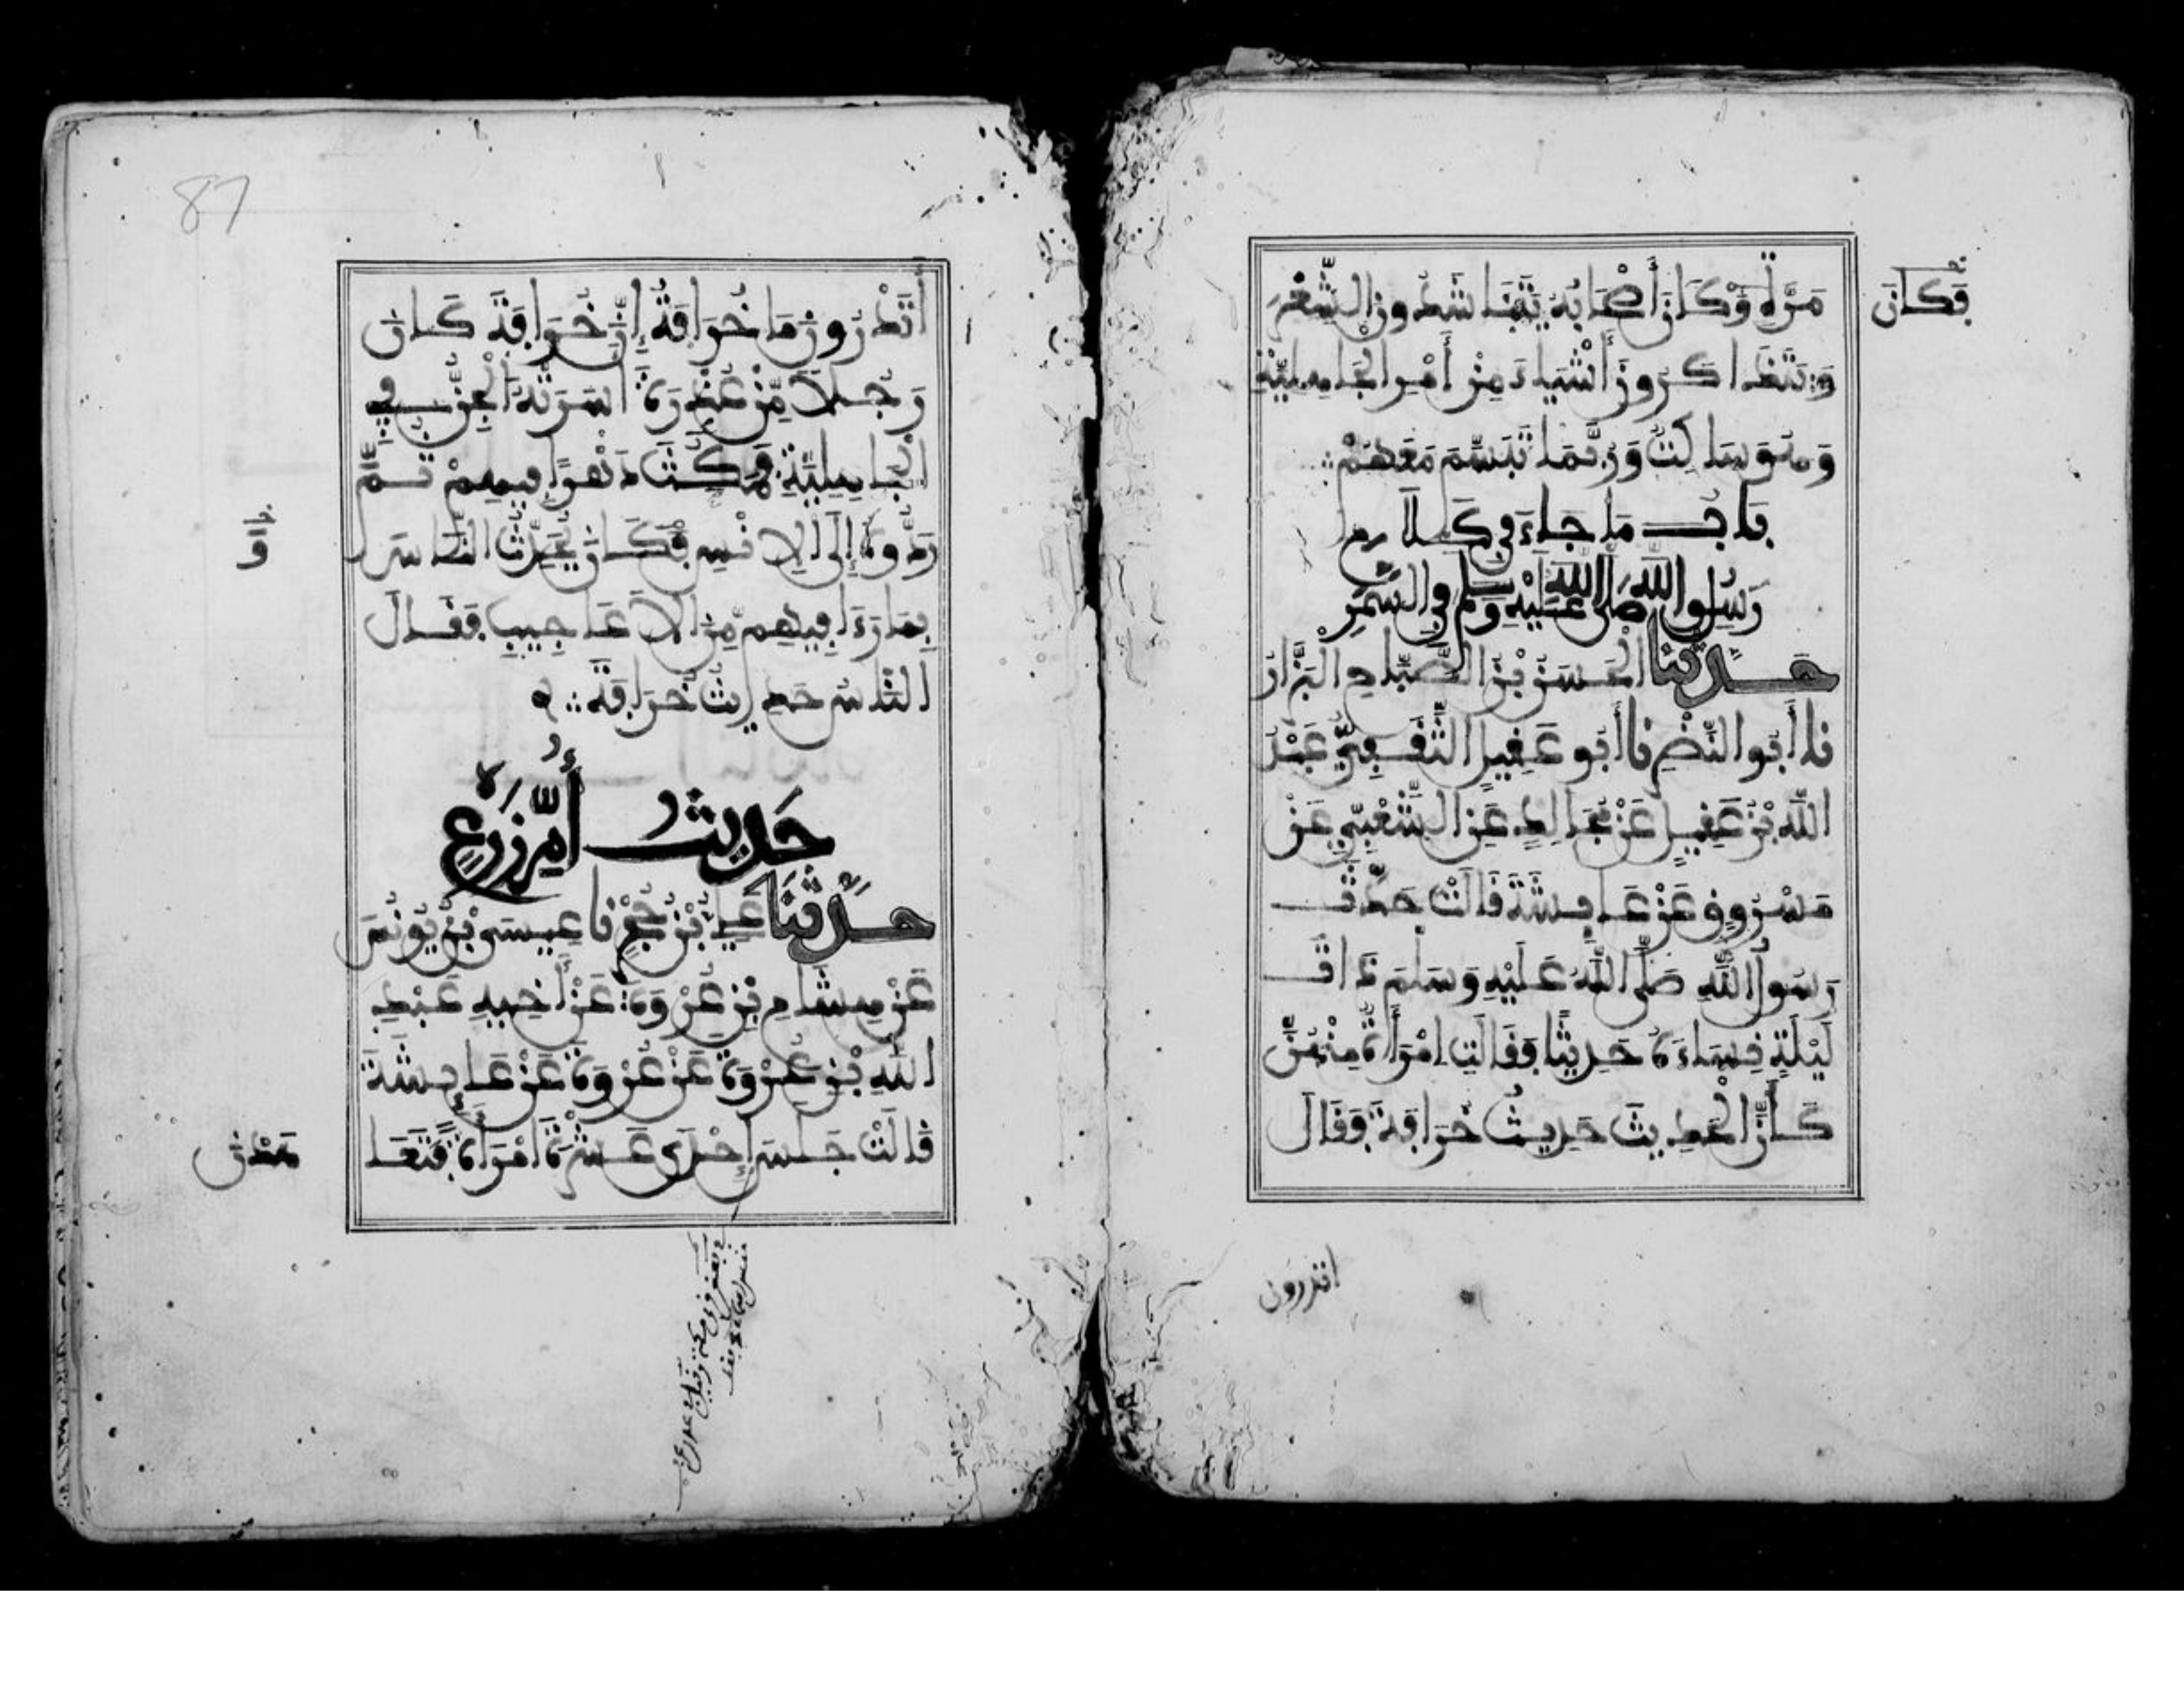 فَكَانَ
مَرَّةٍ وَكَانَ أَصْحَابُهُ يَتَنَاشَدُونَ الشِّعْرَ
وَيَتَذَاكَرُونَ أَشْيَاءَ مِنْ أَمْرِ الْجَاهِلِيَّةِ
وَهُوَ سَاكِتٌ وَرُبَّمَا تَبَسَّمَ مَعَهُمْ
بَابُ مَا جَاءَ فِي كَلَامِ
رَسُولِ اللَّهِ صَلَّى اللَّهُ عَلَيْهِ وَسَلَّمَ فِي السَّمَرِ
حَدَّثَنَا الْحَسَنُ بْنُ الصَّبَّاحِ الْبَزَّارُ
نَا أَبُو النَّضْرِ نَا أَبُو عَقِيلٍ الثَّقَفِيُّ عَبْدُ
اللَّهِ بْنُ عَقِيلٍ عَنْ مُجَالِدٍ عَنِ الشَّعْبِيِّ عَنْ
مَسْرُوقٍ عَنْ عَائِشَةَ قَالَتْ حَدَّثَ
رَسُولُ اللَّهِ صَلَّى اللَّهُ عَلَيْهِ وَسَلَّمَ ذَاتَ
لَيْلَةٍ نِسَاءَهُ حَدِيثًا فَقَالَتِ امْرَأَةٌ مِنْهُنَّ
كَأَنَّ الْحَدِيثَ حَدِيثُ خُرَافَةَ فَقَالَ
اتدرون
87
أَتَدْرُونَ مَا خُرَافَةُ إِنَّ خُرَافَةَ كَانَ
رَجُلًا مِنْ عُذْرَةَ أَسَرَتْهُ الْجِنُّ فِي
الْجَاهِلِيَّةِ فَمَكَثَ دَهْرًا فِيهِمْ ثُمَّ
رَدُّوهُ إِلَى الْإِنْسِ فَكَانَ يُحَدِّثُ النَّاسَ
بِمَا رَءَا فِيهِمْ مِنَ الْأَعَاجِيبِ فَقَالَ
النَّاسُ حَدِيثُ خُرَافَةَ
حَدِيثُ أُمِّ زَرْعٍ
حَدَّثَنَا عَلِيُّ بْنُ حُجْرٍ نَا عِيسَى بْنُ يُونُسَ
عَنْ هِشَامِ بْنِ عُرْوَةَ عَنْ أَخِيهِ عَبْدِ
اللَّهِ بْنِ عُرْوَةَ عَنْ عُرْوَةَ عَنْ عَائِشَةَ
قَالَتْ جَلَسَ إِحْدَى عَشْرَةَ امْرَأَةً فَتَعَا
هَدْنَ